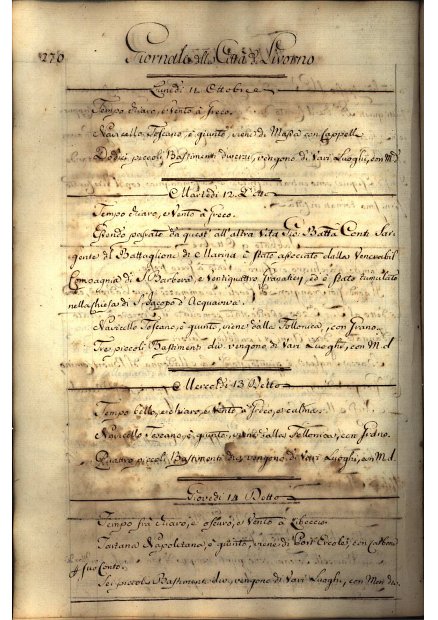 270 Giornale della Città di Livorno
Lunedì 11 Ottobre
Tempo chiaro, e Vento à Greco.
Navicello Toscano, è giunto, viene di Massa con Cappelle
Dodici piccoli Bastimenti diversi, vengono di Vari Luoghi, con M. d.
Martedì 12 Detto
Tempo chiaro, e Vento à Greco.
Essendo passato da quest' all'altra Vita Gio: Batta Conti Ser-
gente del Battaglione di Marina è stato associato dalla Venerabil
Compagnia di S. Barbera, e Ventiquattro granatieri, ed è stato tumulato
nella Chiesa di S. Jacopo d'Acquaviva.
Navicello Toscano, è giunto, viene dalla Follonica, con Grano.
Tre piccoli Bastimenti div. vengono di Vari Luoghi, con M. d.
Mercoldì 13 Detto
Tempo bello, e chiaro, e Vento à Greco, e calma.
Navicello Toscano, è giunto, viene dalla Follonica, con Grano.
Quattro piccoli Bastimenti div. vengono di Vari Luoghi, con M. d.
Giovedì 14 Detto
Tempo frà chiaro, e oscuro, e Vento à Libeccio.
Tartana Napoletana, è giunta, viene di Port' Ercole, con Carbone
suo Conto.
Sei piccoli Bastimenti div. vengono di Vari Luoghi, con Mer. div.